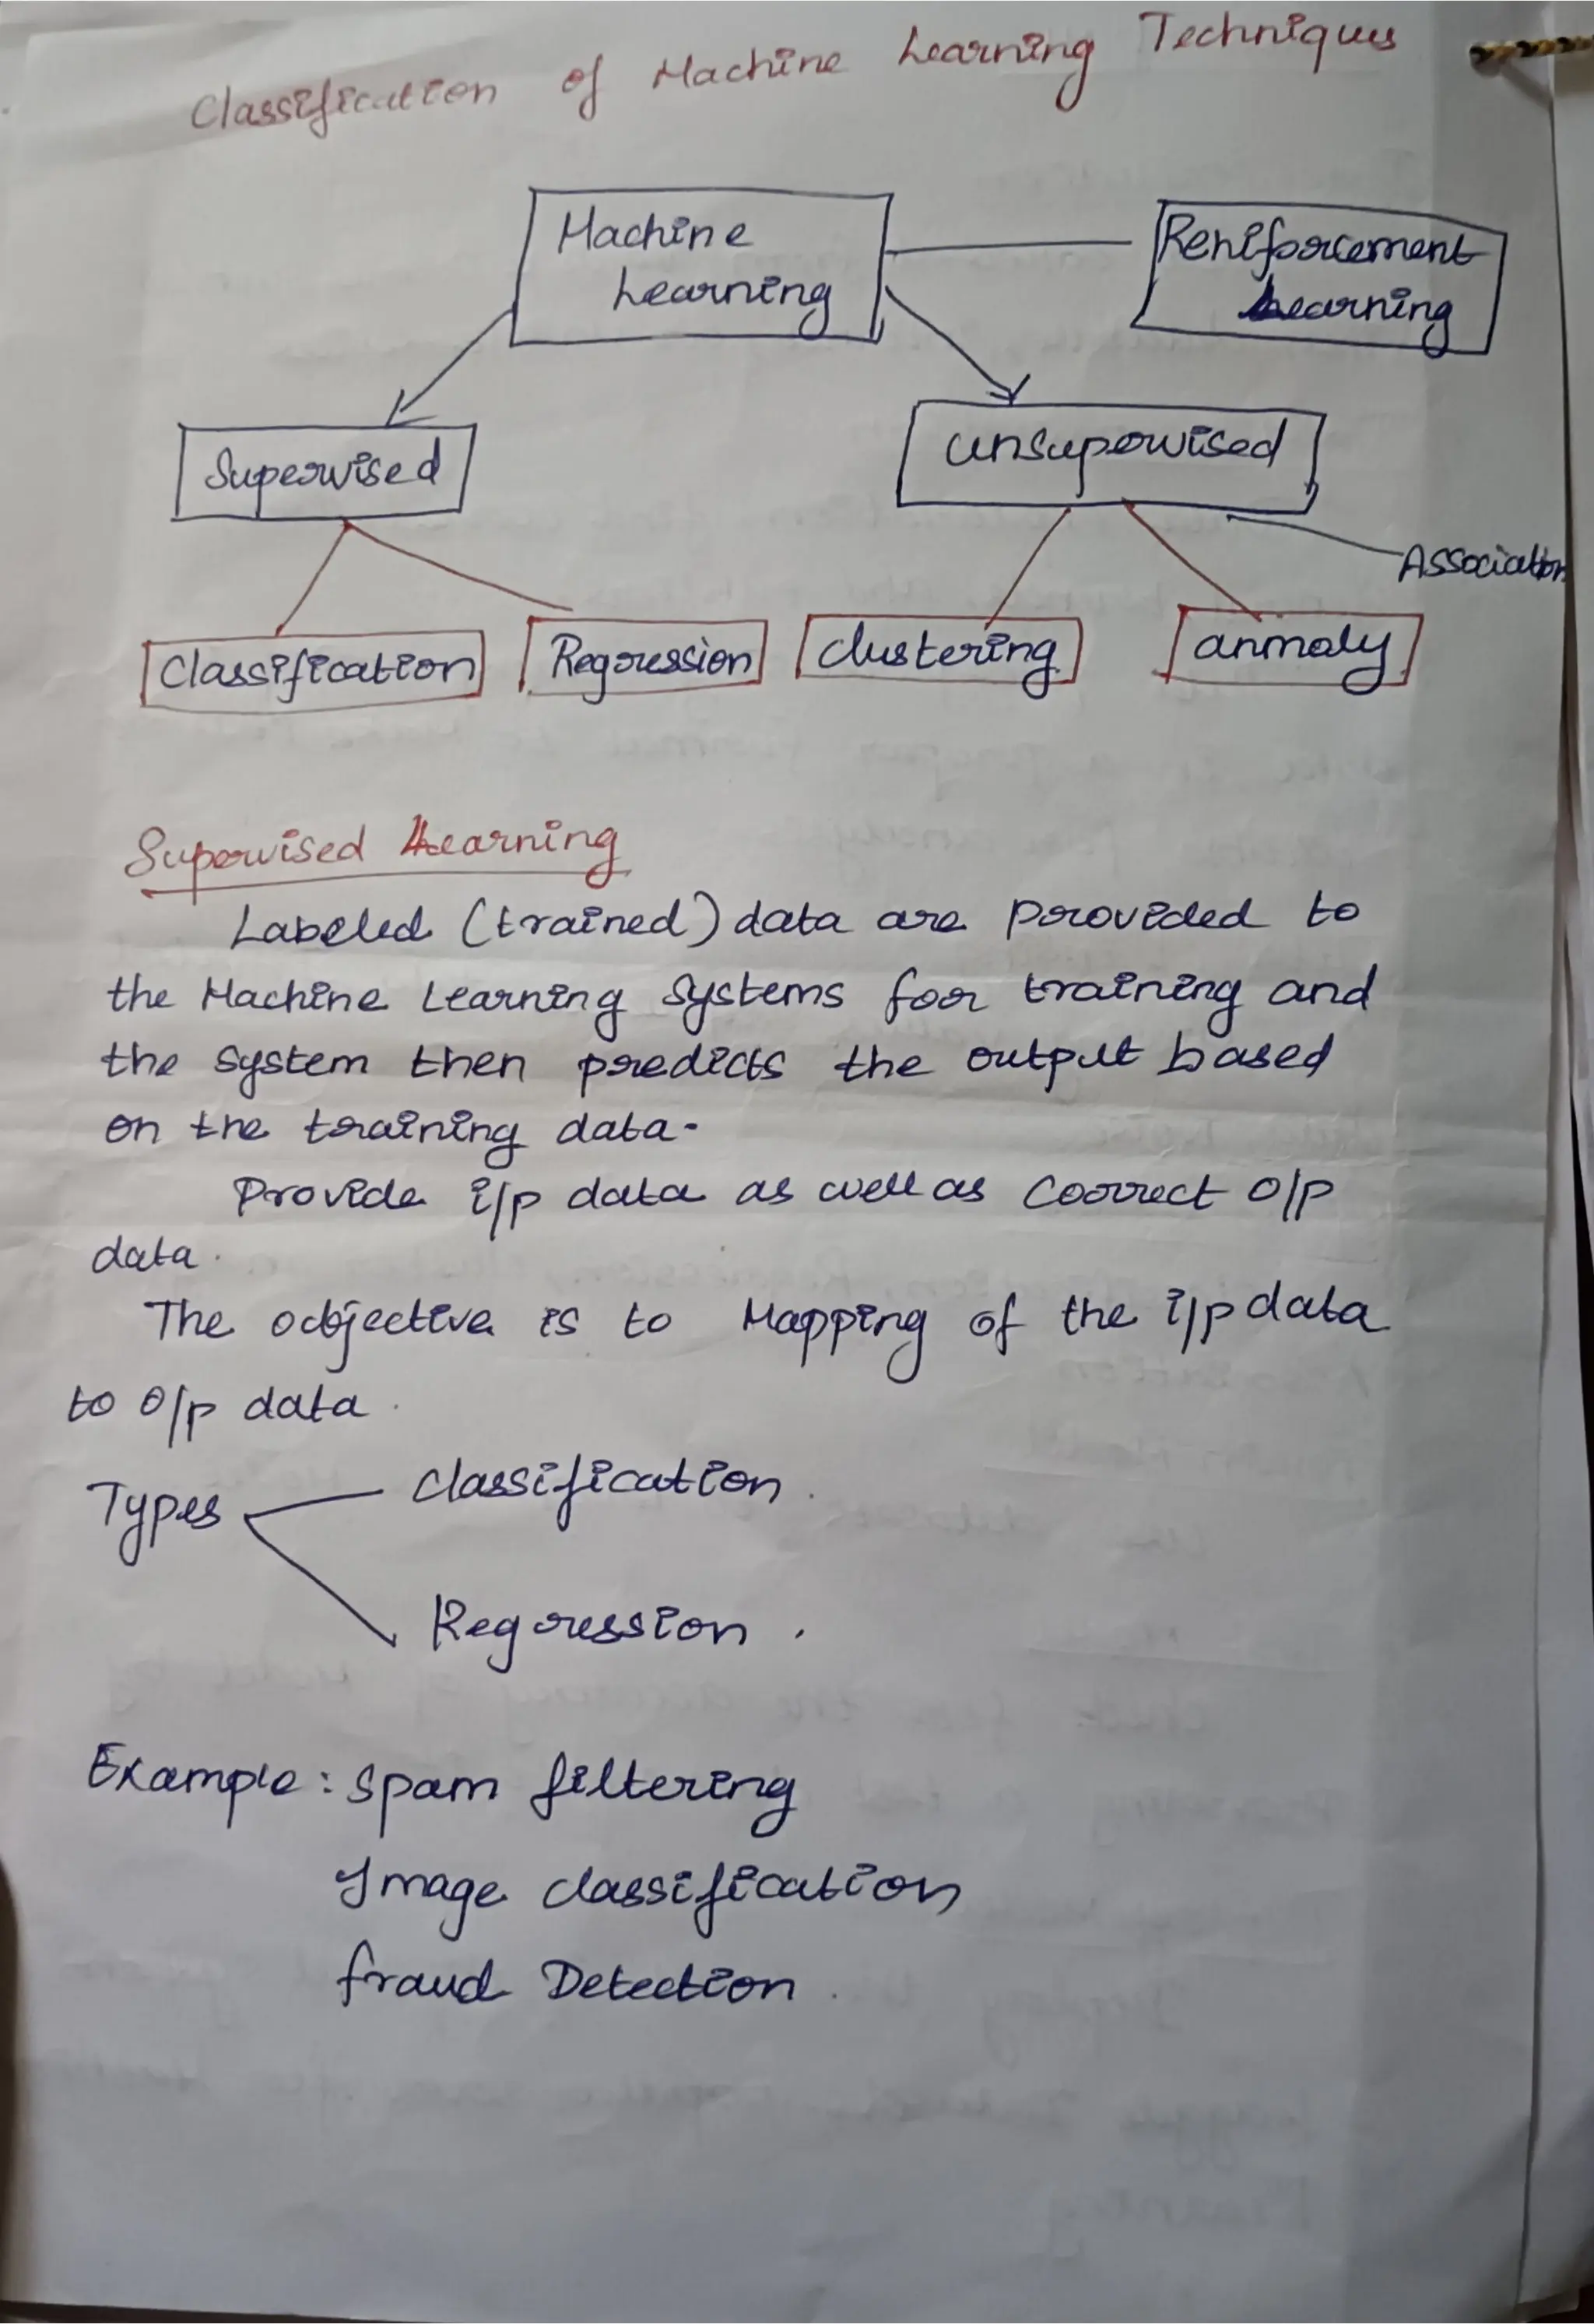 Classification of Machine Learning Techniques
Machine
Learning
Reniforcement
Learning
Supervised
unsupervised
Association
Classification
Regression
clustering
anmoly
Supervised Learning
Labeled (trained) data are provided to
the Machine Learning systems for training and
the system then predicts the output based
on the training data.
Provide i/p data as well as correct o/p
data.
The objective is to Mapping of the i/p data
to o/p data.
Types
classification.
Regression.
Example: spam filtering
Image classification
fraud Detection.